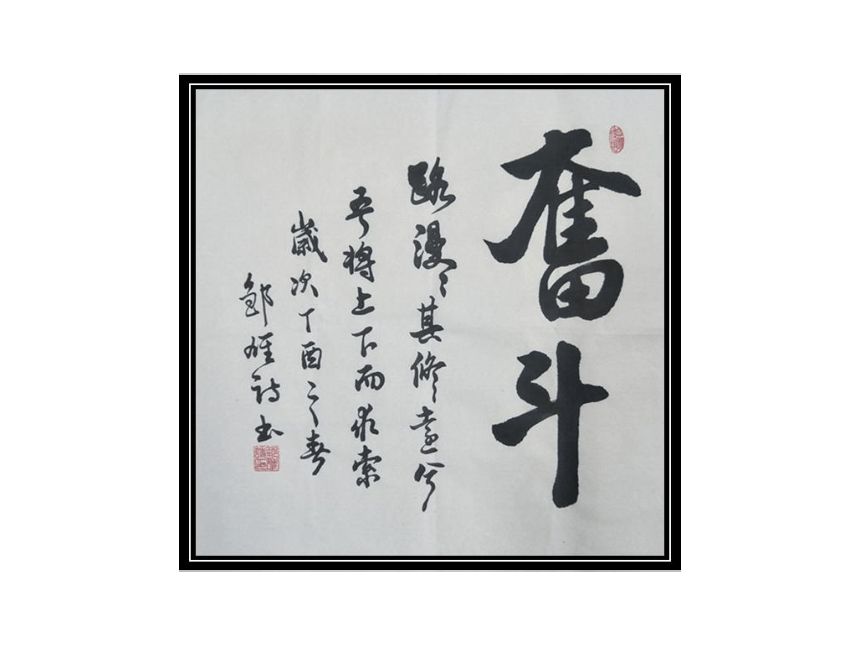 奮斗
路漫々其修遠兮
吾将上下而求索
歳次丁酉之春
鄒雄詩书